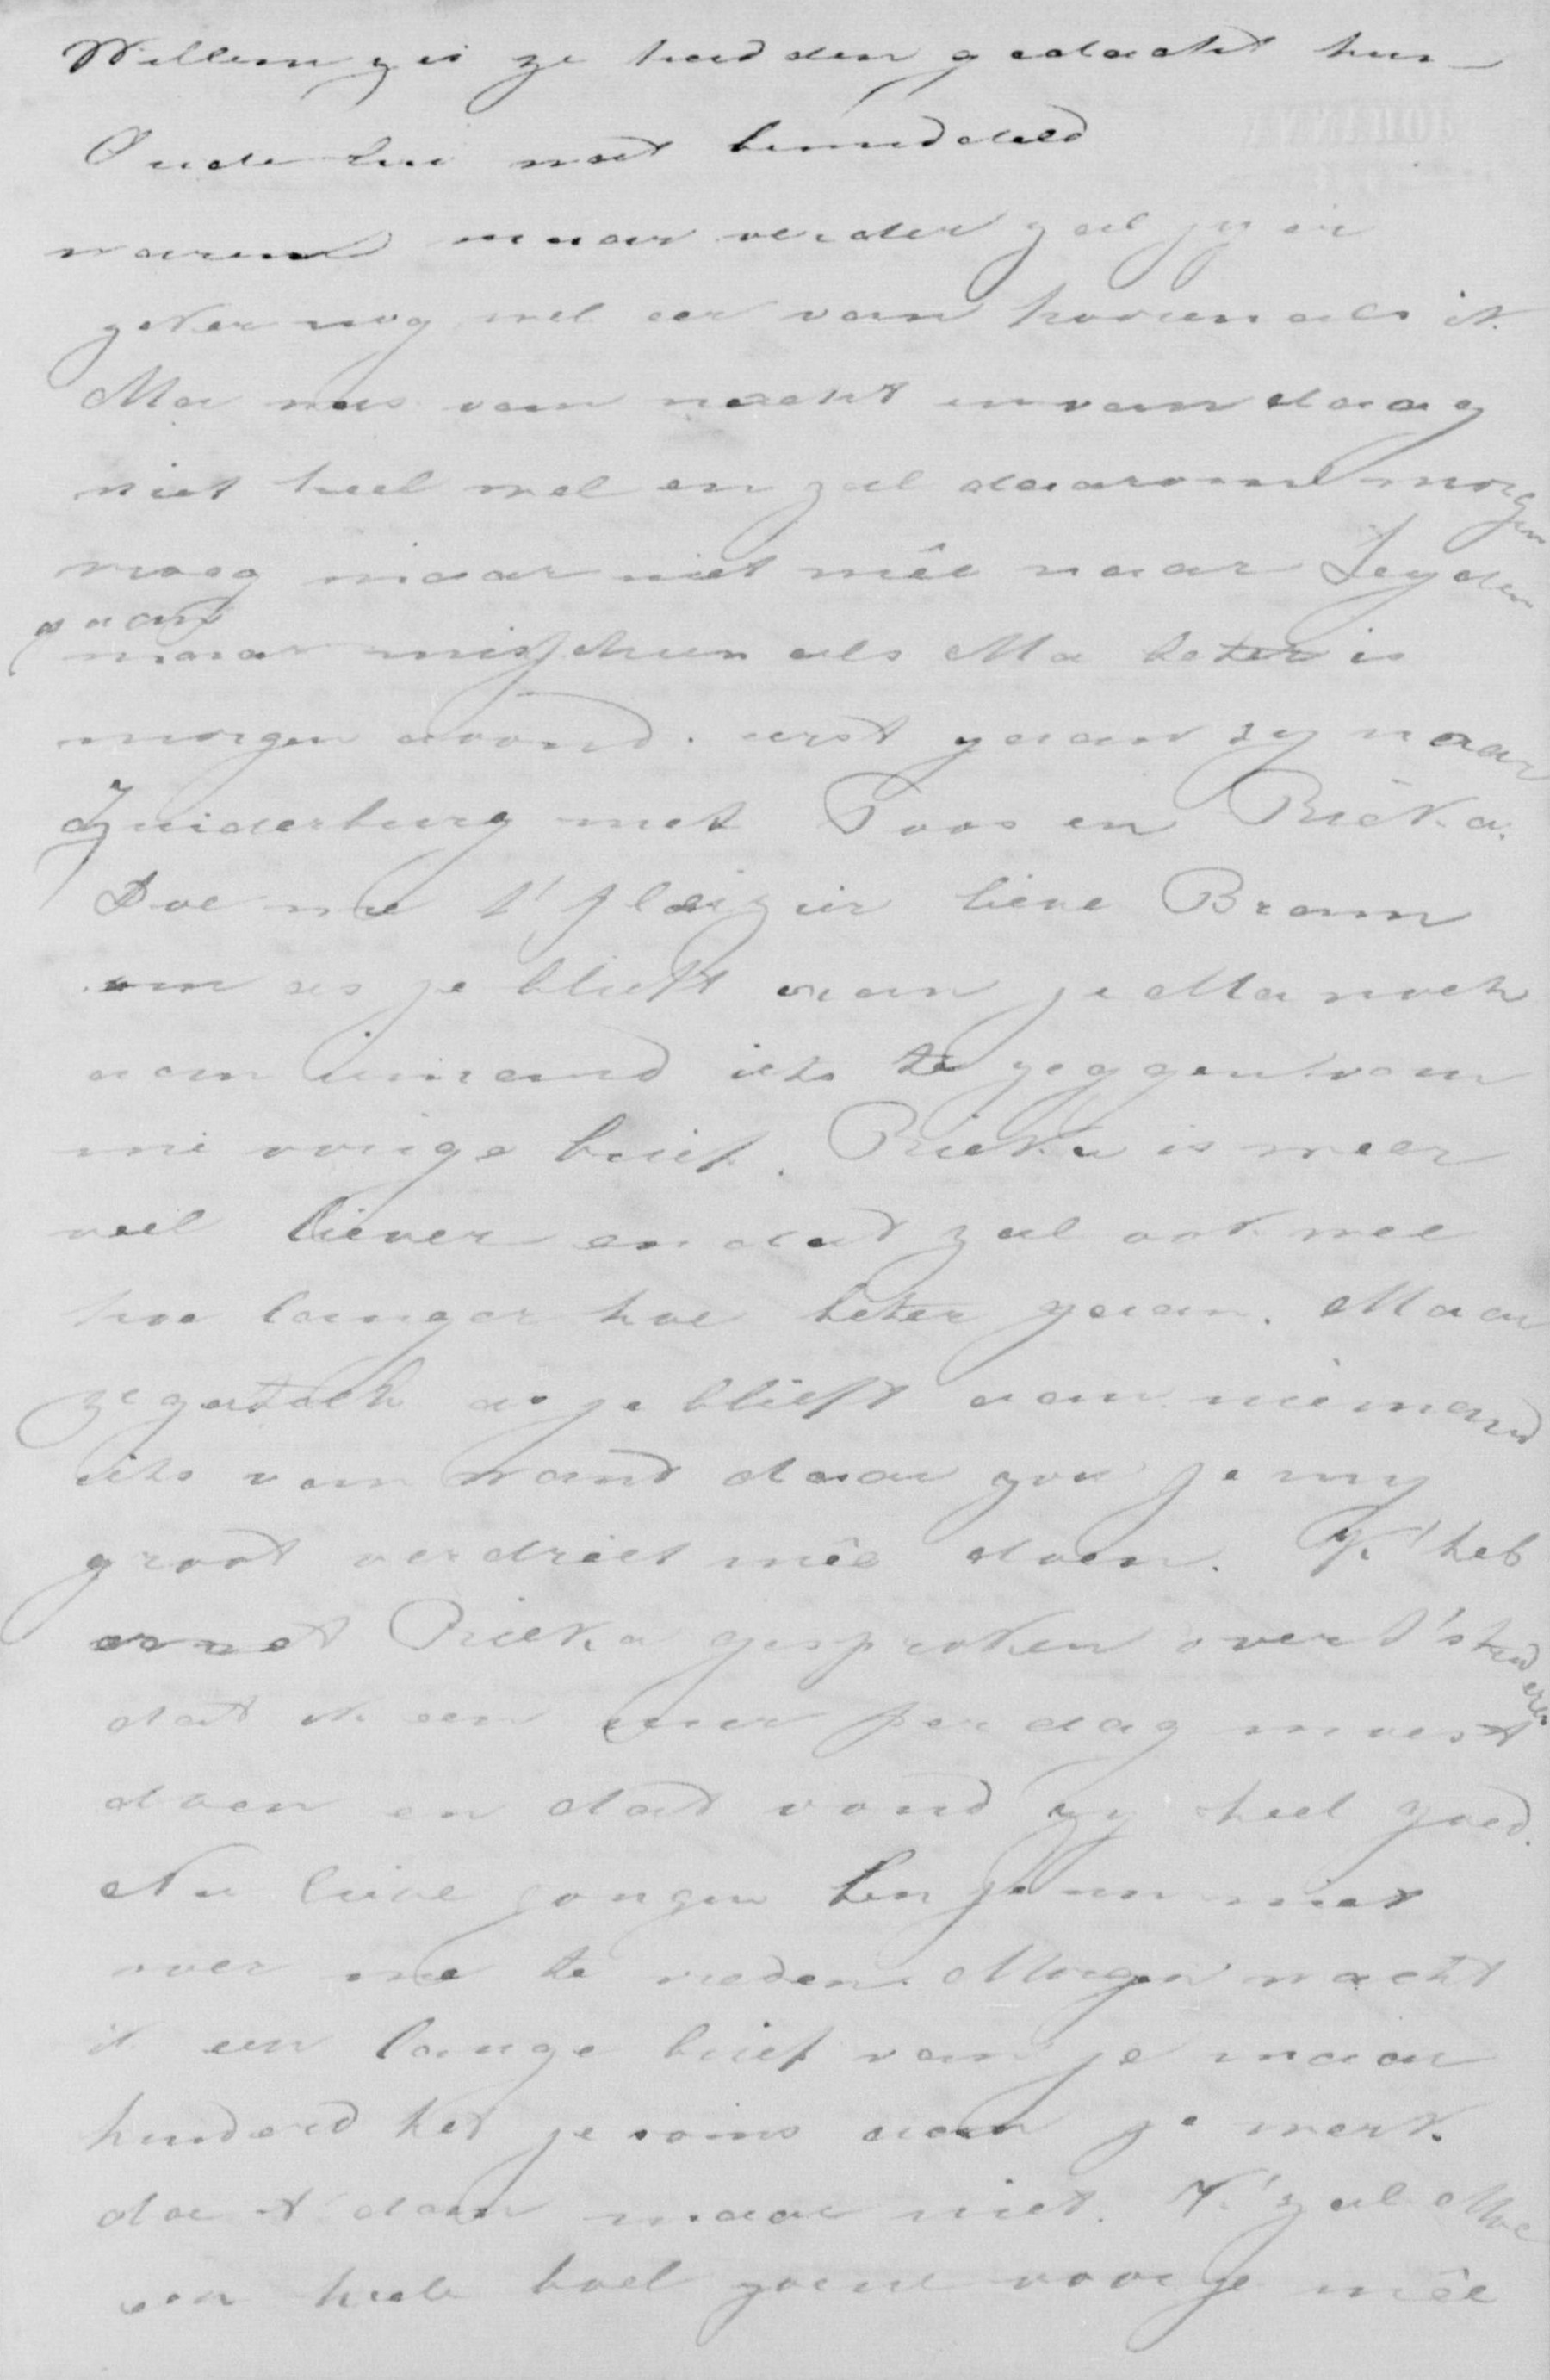 Willem zei ze hadden gedacht hun
Oude lui wat bemiddeld
waren maar verder zal jy er
zeker nog wel eer van hooren als ik.
Ma was van nacht en van daag
niet heel wel en zal daarom morgen
vroeg maar niet mêe naar Leyden
gaan
maar misschien als Ma beter is
morgen avond. eerst gaan zy naar
Zuiderburg met Toos en Rieka.
Doe me t' pleizier lieve Bram
om as je blieft aan je Ma noch
aan iemand iets te zeggen van
mi vorige brief. Rieka is weer
veel liever en dat zal ook wel
hoe langer hoe beter gaan. Maar
zeg toch as je blieft aan niemand
iets van want daar zou je my
groot verdriet mêe doen. K' heb
er met Rieka gesproken over t' studeren
dat ik een uur per dag moest
doen en dat vond zy heel goed.
Nu lieve jongen ben je nu niet
over me te vreden. Morgen wacht
ik een lange brief van je maar
hinderd het je soms aan je werk.
doe t dan maar niet. K' zal Moe
een heele boel zoene voor je mêe